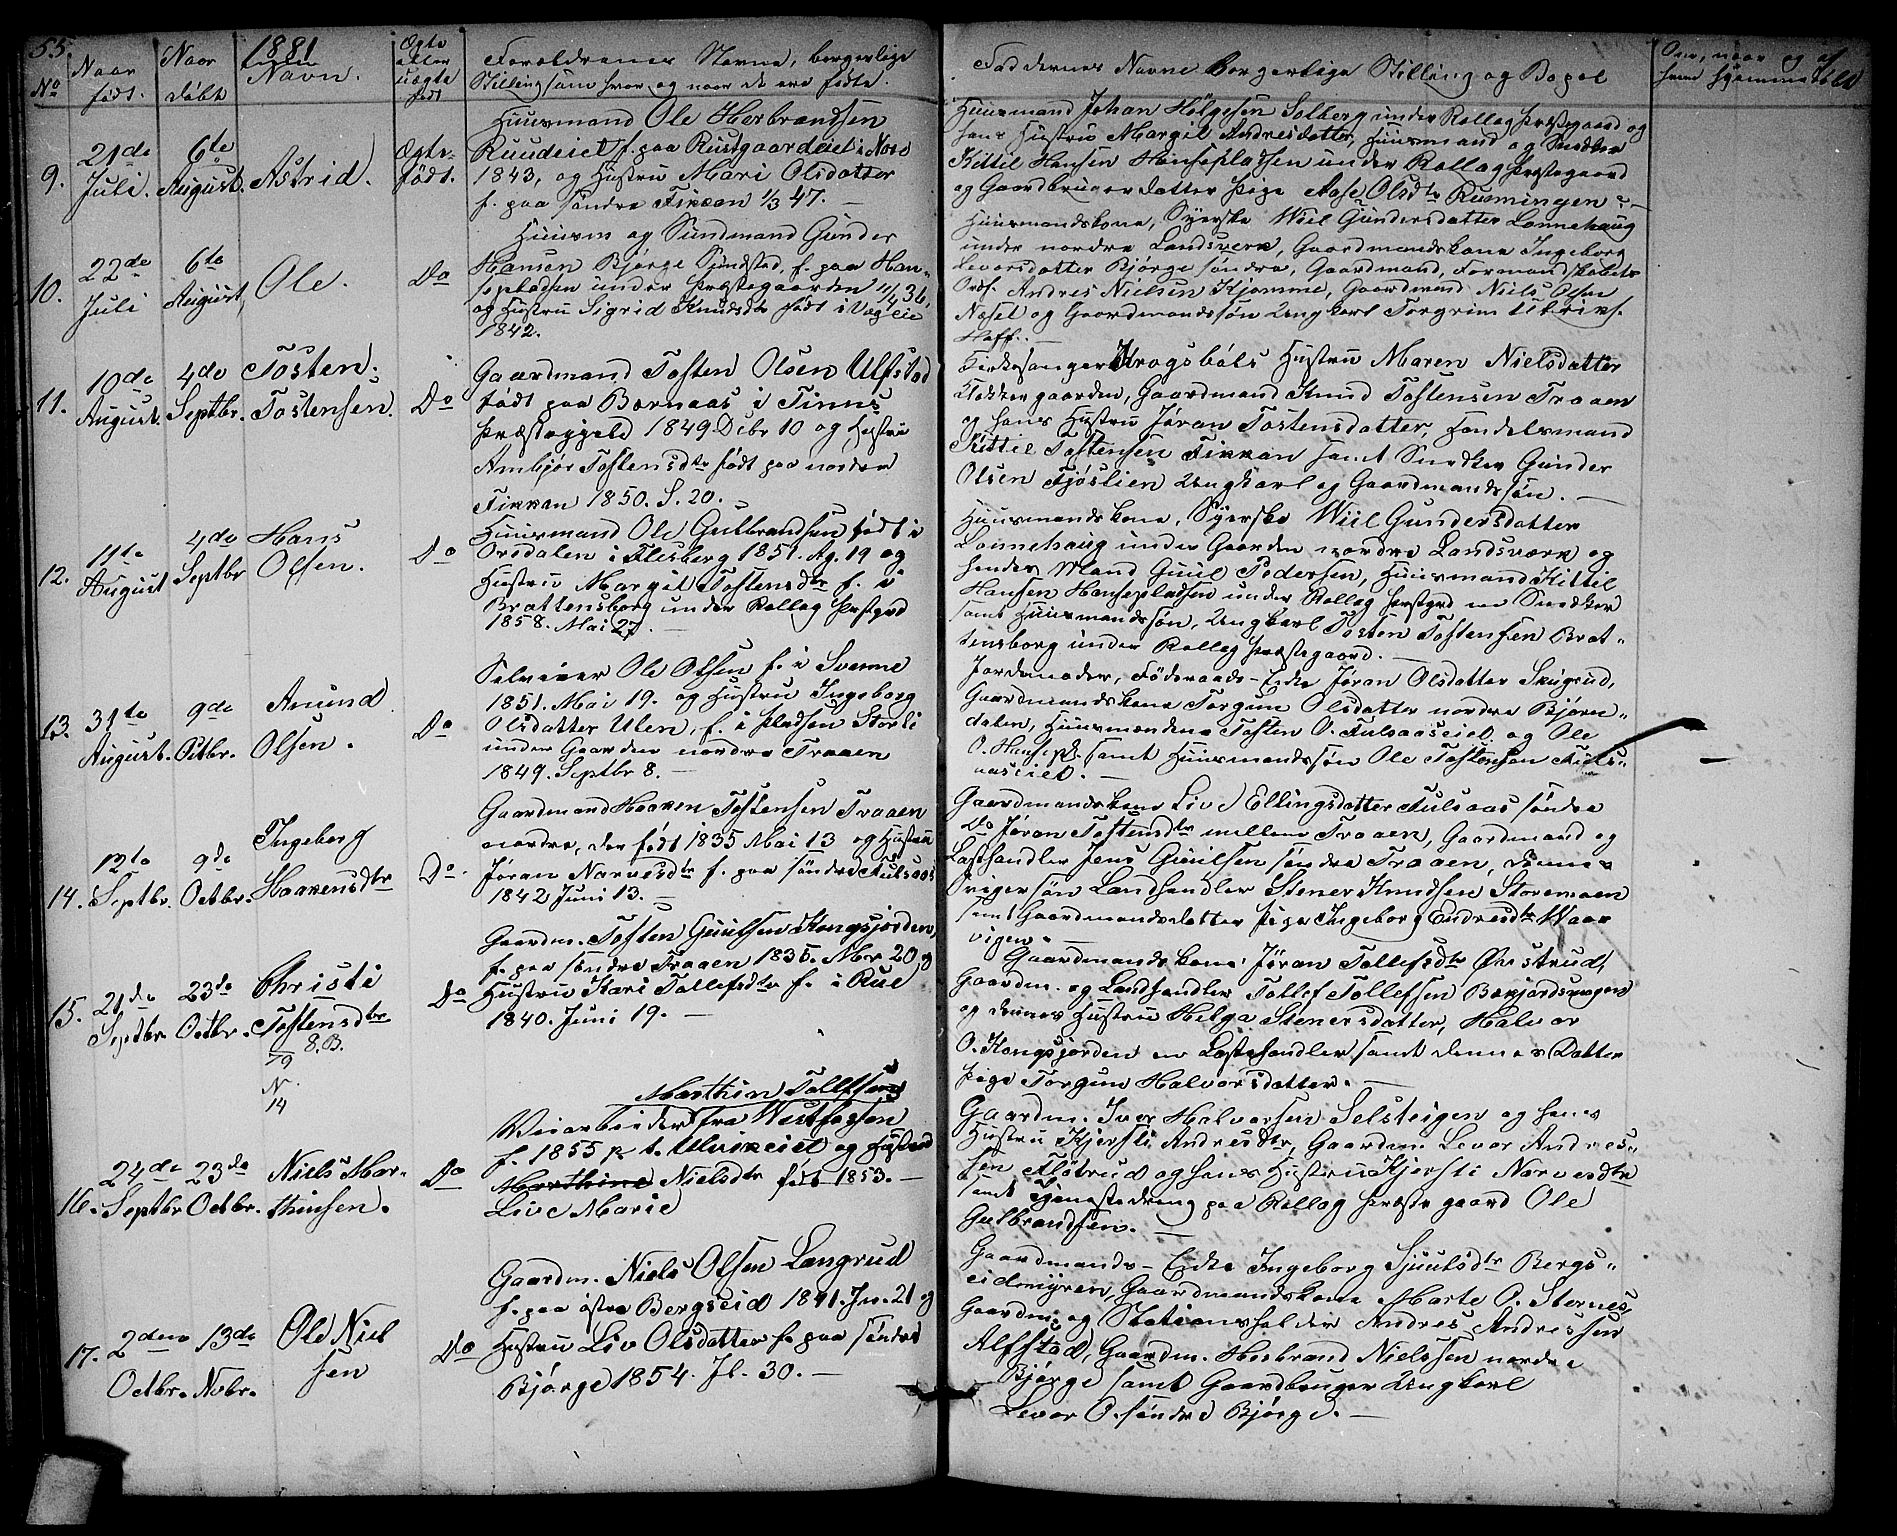 55. 1881
No Naar født. Naar døbt Navn. Ægte eller uægte født Forældrenes Navne, borgerlige Stilling samt hvor og naar de ere fødte. Faddernes Navne Borgerlige Stilling og Bopel Om, naar og af hvem hjemmedøbt
9. 21de Juli. 6te August. Astrid. Ægte-født.
Huusmand Ole Herbrandsen
Ruudeiet f. paa Rustgaardeiet i Nore
1843, og Hustru Mari Olsdatter
f. paa søndre Fikkan 1/3 47. —
Huusmand Johan Helgesen Solberg under Rollag Præstegaard og
hans Hustru Margit Andresdatter, Huusmand og Snedker
Kittil Hansen Hansepladsen under Rollag Præstegaard
og Gaardbruger datter Pige Aase Olsdtr Runningen. —
10. 22de Juli 6te August, Ole. Do
Huusm og Sundmand Gunder
Hansen Bjørge Sundstad, f. paa Han-
sepladsen under Præstegaarden 11/4 36,
og Hustru Sigrid Knudsdtr født i Vegli
1842.
Huusmandskone, Syerske Wiil Gundersdatter Lonnehaug
under nordre Landsverk, Gaardmandskone Ingeborg
Levorsdatter Bjørge søndre, Gaardmand, Formandskabets
Ordf. Andres Nielsen Kjomme, Gaardmand Niels Olsen
Næset og Gaardmandssøn Ungkarl Torgrim
Hoff. —
11. 10de August. 4de Septbr. Tosten Tostensen. Do
Gaardmand Tosten Olsen Ulfstad
født paa Bernaas i Tinns
Præstegjeld 1849 Debr 10 og Hustru
Ambjør Tostensdtr født paa nordre
Fikkan 1850. S. 20. —
Kirkesanger Krogsbøls Hustru Maren Nielsdatter
Klokkergaarden, Gaardmand Knud Tostensen Traaen
og hans Hustru Jøran Tostensdatter, Handelsmand
Kittil Tostensen Fikkan samt Snedker Gunder
Olsen Fjøslien Ungkarl og Gaardmandssøn. —
12. 11te August 4de Septbr Hans Olsen. Do
Huusmand Ole Gulbrandsen født i
Orsdalen i Flesberg 1851. Ag. 19 og
Hustru Margit Tostensdtr f. i
Brattensborg under Rollag Præstgrd
1858. Mai 27. —
Huusmandskone, Syerske Wiil Gundersdatter
Lonnehaug under Gaarden nordre Landsværk og
hendes Mand Guul Pedersen, Huusmand Kittil
Hansen Hansepladsen under Rollag Præstgrd en Snedker
samt Huusmandssøn, Ungkarl Tosten Tostensen Brat-
tensborg under Rollag Præstegaard. —
13. 31te August. 9de Octbr. Amund Olsen. Do
Selveier Ole Olsen f. i Svenne
1851. Mai 19. og Hustru Ingeborg
Olsdatter Ulen, f. i Pladsen Storli
under Gaarden nordre Traaen
1849. Septbr 8. —
Jordemoder, Føderaads-Enke Jøran Olsdatter Skugrud,
Gaardmandskone Torgun Olsdatter nordre Bjørn-
dalen, Huusmændene Tosten O. Fulsaaseiet og Ole
O. Hansepl. samt Huusmandssøn Ole Tostensen Fuls-
aaseiet. —
14. 12te Septbr. 9de Octbr. Ingeborg Haakensdtr Do.
Gaardmand Haaken Tostensen Traaen
nordre, der født 1835 Mai 13 og Hustru
Jøran Narvesdtr f. paa søndre Fulsaas
1842 Juni 13. —
Gaardmandskone Liv Ellingsdatter Fulsaas søndre
Do Jøran Tostensdtr mellem Traaen, Gaardmand og
Lasthandler Jens Guulsen søndre Traaen, dennes
Svigersøn Landhandler Stener Knudsen Storemoen
samt Gaardmandsdatter Pige Ingeborg Endresdtr Waar
vigen. —
15. 21de Septbr. 23de Octbr. Christi Tostensdtr Do
8. B.
19
N.
14
Gaardm. Tosten Guulsen Kongsjorden,
f. paa søndre Traaen 1835. Nbr 20 og
Hustru Kari Tollefsdtr f. i Rue
1840. Juni 19. —
Gaardmandskone Jøran Tollefsdtr Øvstrud,
Gaardm. og Landhandler Tollef Tollefsen Bekjordsmogen
og dennes Hustru Helga Stenersdatter, Halvor
O. Kongsjorden en Lasthandler samt dennes Datter
Pige Torgun Halvorsdatter. —
16. 24de Septbr 23de Octbr. Niels Mar-thinsen. Do
Marthin Tollefsen
Veiarbeider fra Westfossen
f. 1855 p. t. Ulvikeiet og Hustru
Marthine Nielsdtr født 1853. —
Live Marie
Gaardm. Iver Halvorsen Selsteigen og hans
Hustru Kjersti Andresdtr, Gaardm. Levor Andres-
sen Fløtrud og hans Hustru Kjersti Narvesdtr
samt Tjenestedreng paa Rollag Præstegaard Ole
Gulbrandsen. —
17. 2den Octbr. 13de Nvbr. Ole Nielsen Do
Gaardm. Niels Olsen Langrud
f. paa østre Bergseid 1841. Jn. 21 og
Hustru Liv Olsdatter f. paa søndre
Bjørge 1854. Jl. 30. —
Gaardmands-Enke Ingeborg Sjuulsdtr Bergs-
eidmyren, Gaardmandskone Marte O. Sternes,
Gaardm. og Stationsholder Andres Andressen
Alfstad, Gaardm. Herbrand Nielssen nordre
Bjørge samt Gaardbruger Ungkarl
Levor O. søndre Bjørge. —